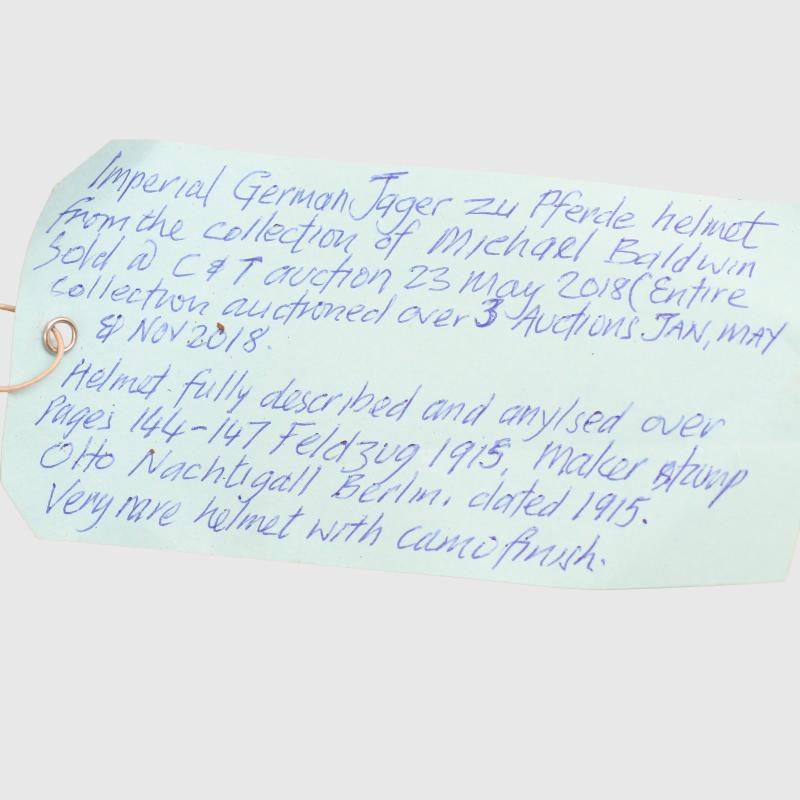 Imperial German Jager zu Pferde helmet
from the collection of Michael Baldwin
Sold @ C & T auction 23 May 2018 (Entire
collection auctioned over 3 Auctions JAN, MAY
& NOV 2018.
Helmet fully described and anylsed over
Pages 144-147 Feldzug 1915, Maker stamp
Otto Nachtigall Berlin, dated 1915.
Very rare helmet with camo finish.